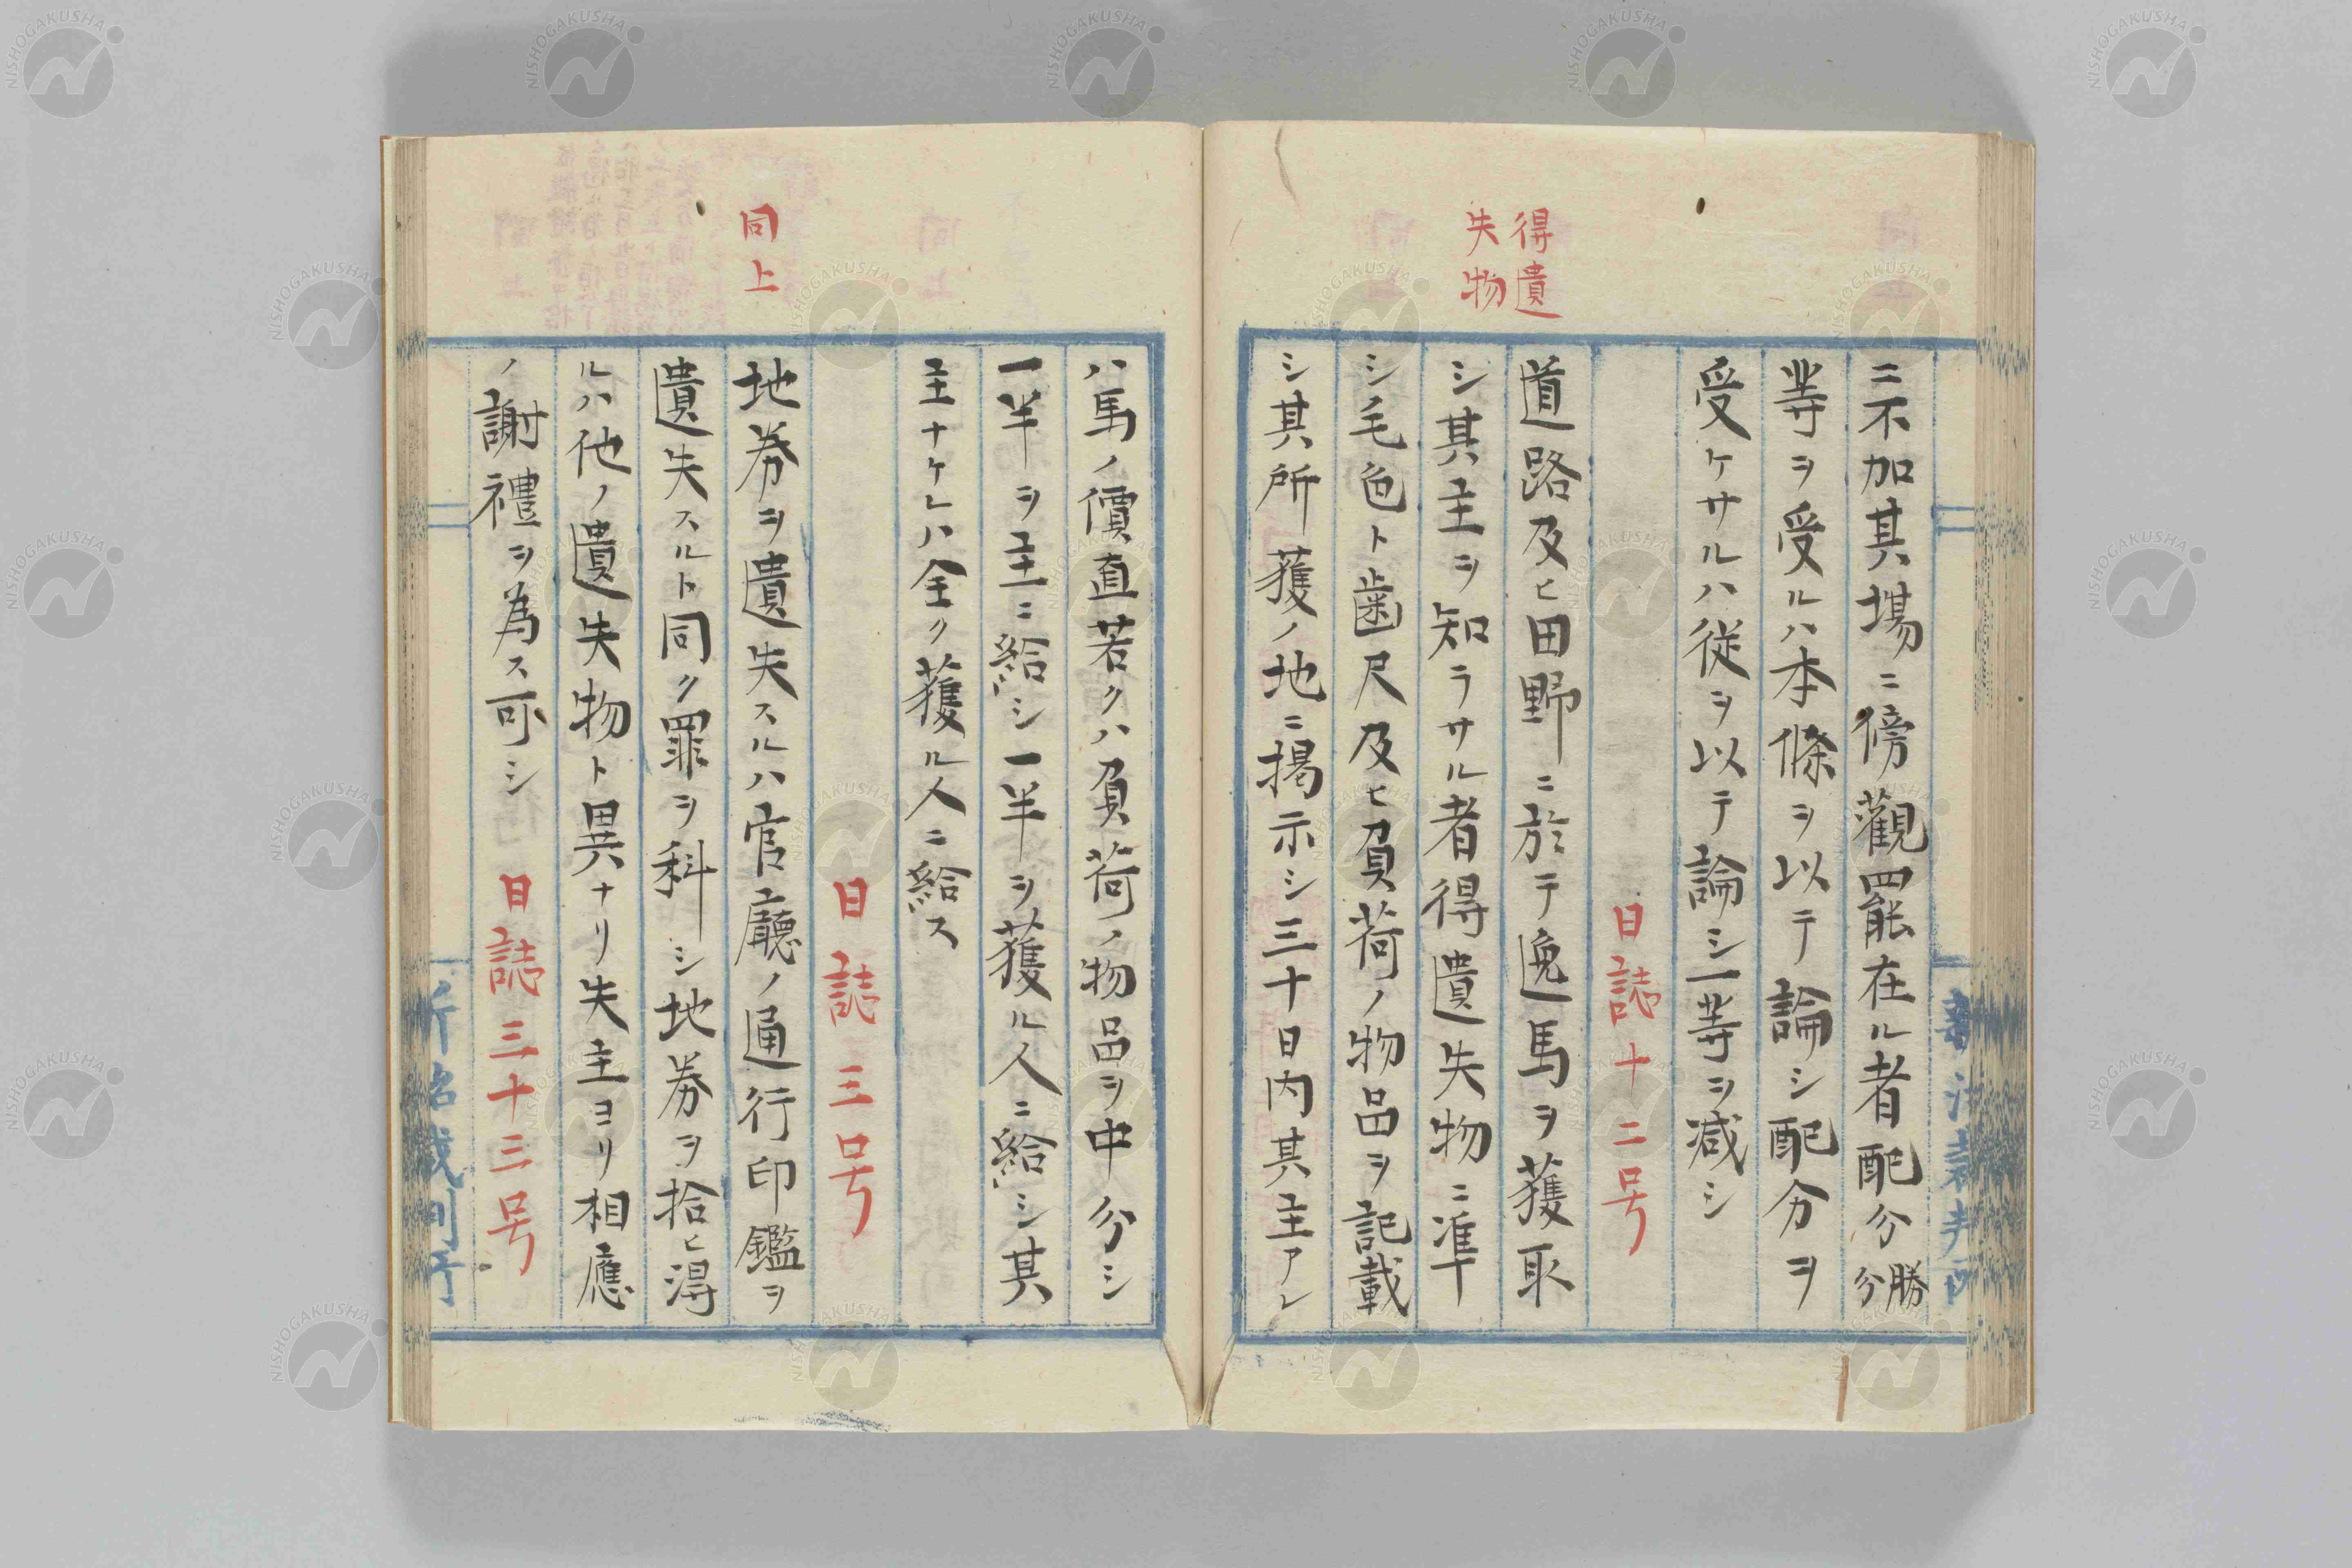 得遺
失物
ニ不加其場ニ傍觀罷在ル者配分勝分
等ヲ受ルハ本條ヲ以テ論シ配分ヲ
受ケサルハ従ヲ以テ論シ一等ヲ減シ
日誌十二号
道路及ヒ田野ニ於テ逸馬ヲ獲取
シ其主ヲ知ラサル者得遺失物ニ準
シ毛色ト歯尺及ヒ負荷ノ物品ヲ記載
シ其所獲ノ地ニ掲示シ三十日内其主アレ
同上
ハ馬ノ價直若クハ負荷ノ物品ヲ中分シ
一半ヲ主ニ給シ一半ヲ獲ル人ニ給シ其
主ナケレハ全ク獲ル人ニ給ス
日誌三号
地券ヲ遺失スルハ官廳ノ通行印鑑ヲ
遺失スルト同ク罪ヲ科シ地券ヲ拾ヒ得
ルハ他ノ遺失物ト異ナリ失主ヨリ相應
ノ謝禮ヲ為ス可シ
日誌三十三号
NISHOGAKUSHA